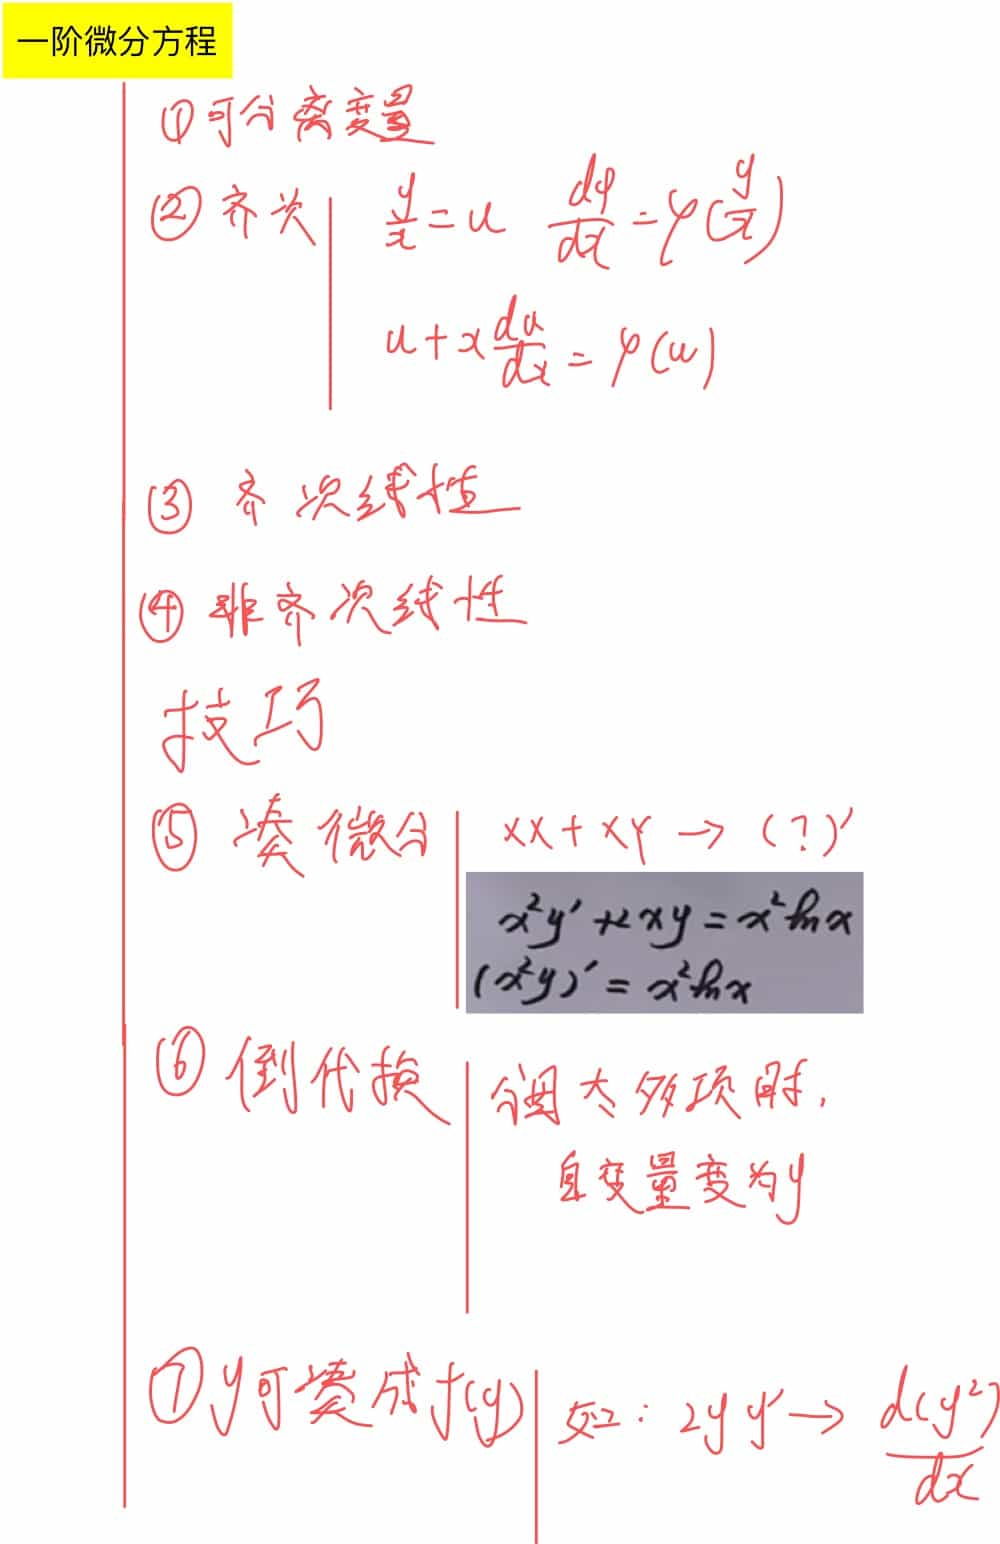 一阶微分方程
①可分离变量
②齐次 y/x=u dy/dx=φ(y/x)
u+x du/dx=φ(u)
③齐次线性
④非齐次线性
技巧
⑤凑微分 xx+xy→(?)′
x²y′+2xy=x²lnx
(x²y)′=x²lnx
⑥倒代换 分母太多项时,
自变量变为y
⑦y可凑成f(y) 如:2yy′→d(y²)/dx